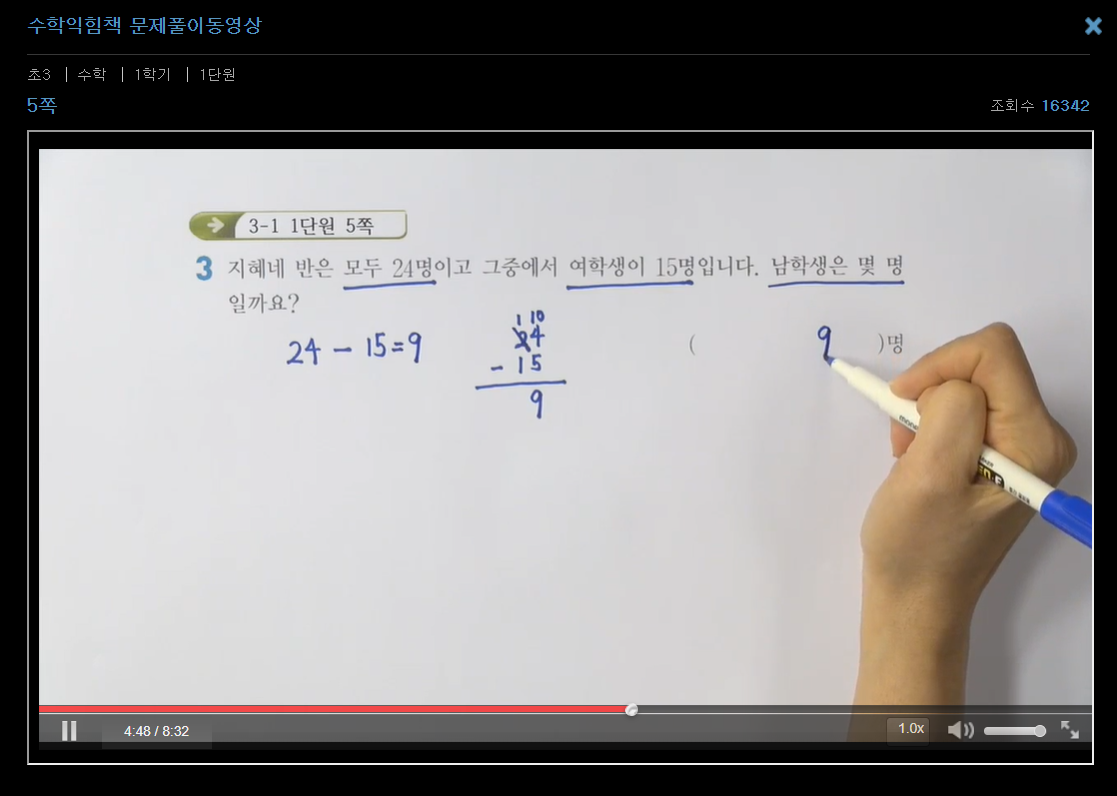 수학익힘책 문제풀이동영상
초3 | 수학 | 1학기 | 1단원
5쪽
조회수 16342
3-1 1단원 5쪽
3 지혜네 반은 모두 24명이고 그중에서 여학생이 15명입니다. 남학생은 몇 명
일까요?
24 - 15 = 9
1 10
24
- 15
9
( 9 )명
4:48 / 8:32
1.0x